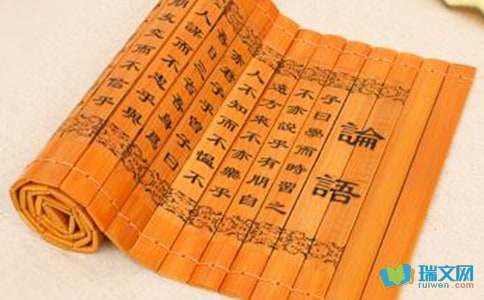 論語
子曰學而時習之
不亦說乎有朋自
遠方來不亦樂乎
人不知而不慍不
亦君子乎曾子曰
吾日三省吾身為
人謀而不忠乎與
朋友交而不信乎
瑞文网
ruiwen.com